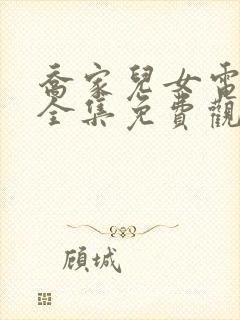 喬家兒女電
全集免費觀
顾城